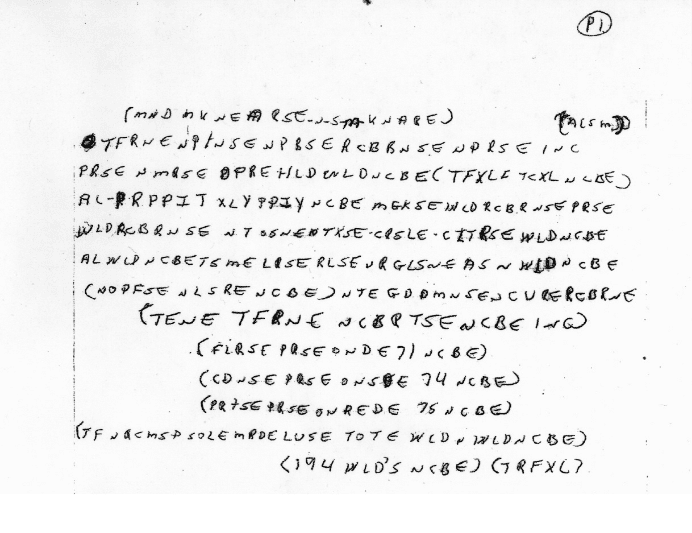 P1
(MND MKNEARSE-N-S-M-KNARE) (ACSM)
TFRNE NPINSENPBSERCBBNSE NPRSE INC
PRSE NMRSE OPREHLD WLDNCBE (TFXLF TCXL NCBE)
AL-PRPPIT XLY PPIY NCBE MGKSE WLDRCBRNSE PRSE
WLDRCBRNSE NTOSNENTXSE-CRSLE-CITRSE WLDNCBE
ALWLDNCBETSMELRSERLSEURGLSNEASN WLDNCBE
(NOPFSE NLSRENCBE) NTEGDDMNSENCURERCBRNE
(TENE TFRNE NCBRTSENCBE INC)
(FLRSE PRSE ONDE 71 NCBE)
(CDNSE PRSE ONSDE 74 NCBE)
(PRTSE PRSE ONREDE 75 NCBE)
(TFNRCMSPSOLEMRDELUSE TOTE WLDN WLDNCBE)
(194 WLD'S NCBE) (TRFXL)